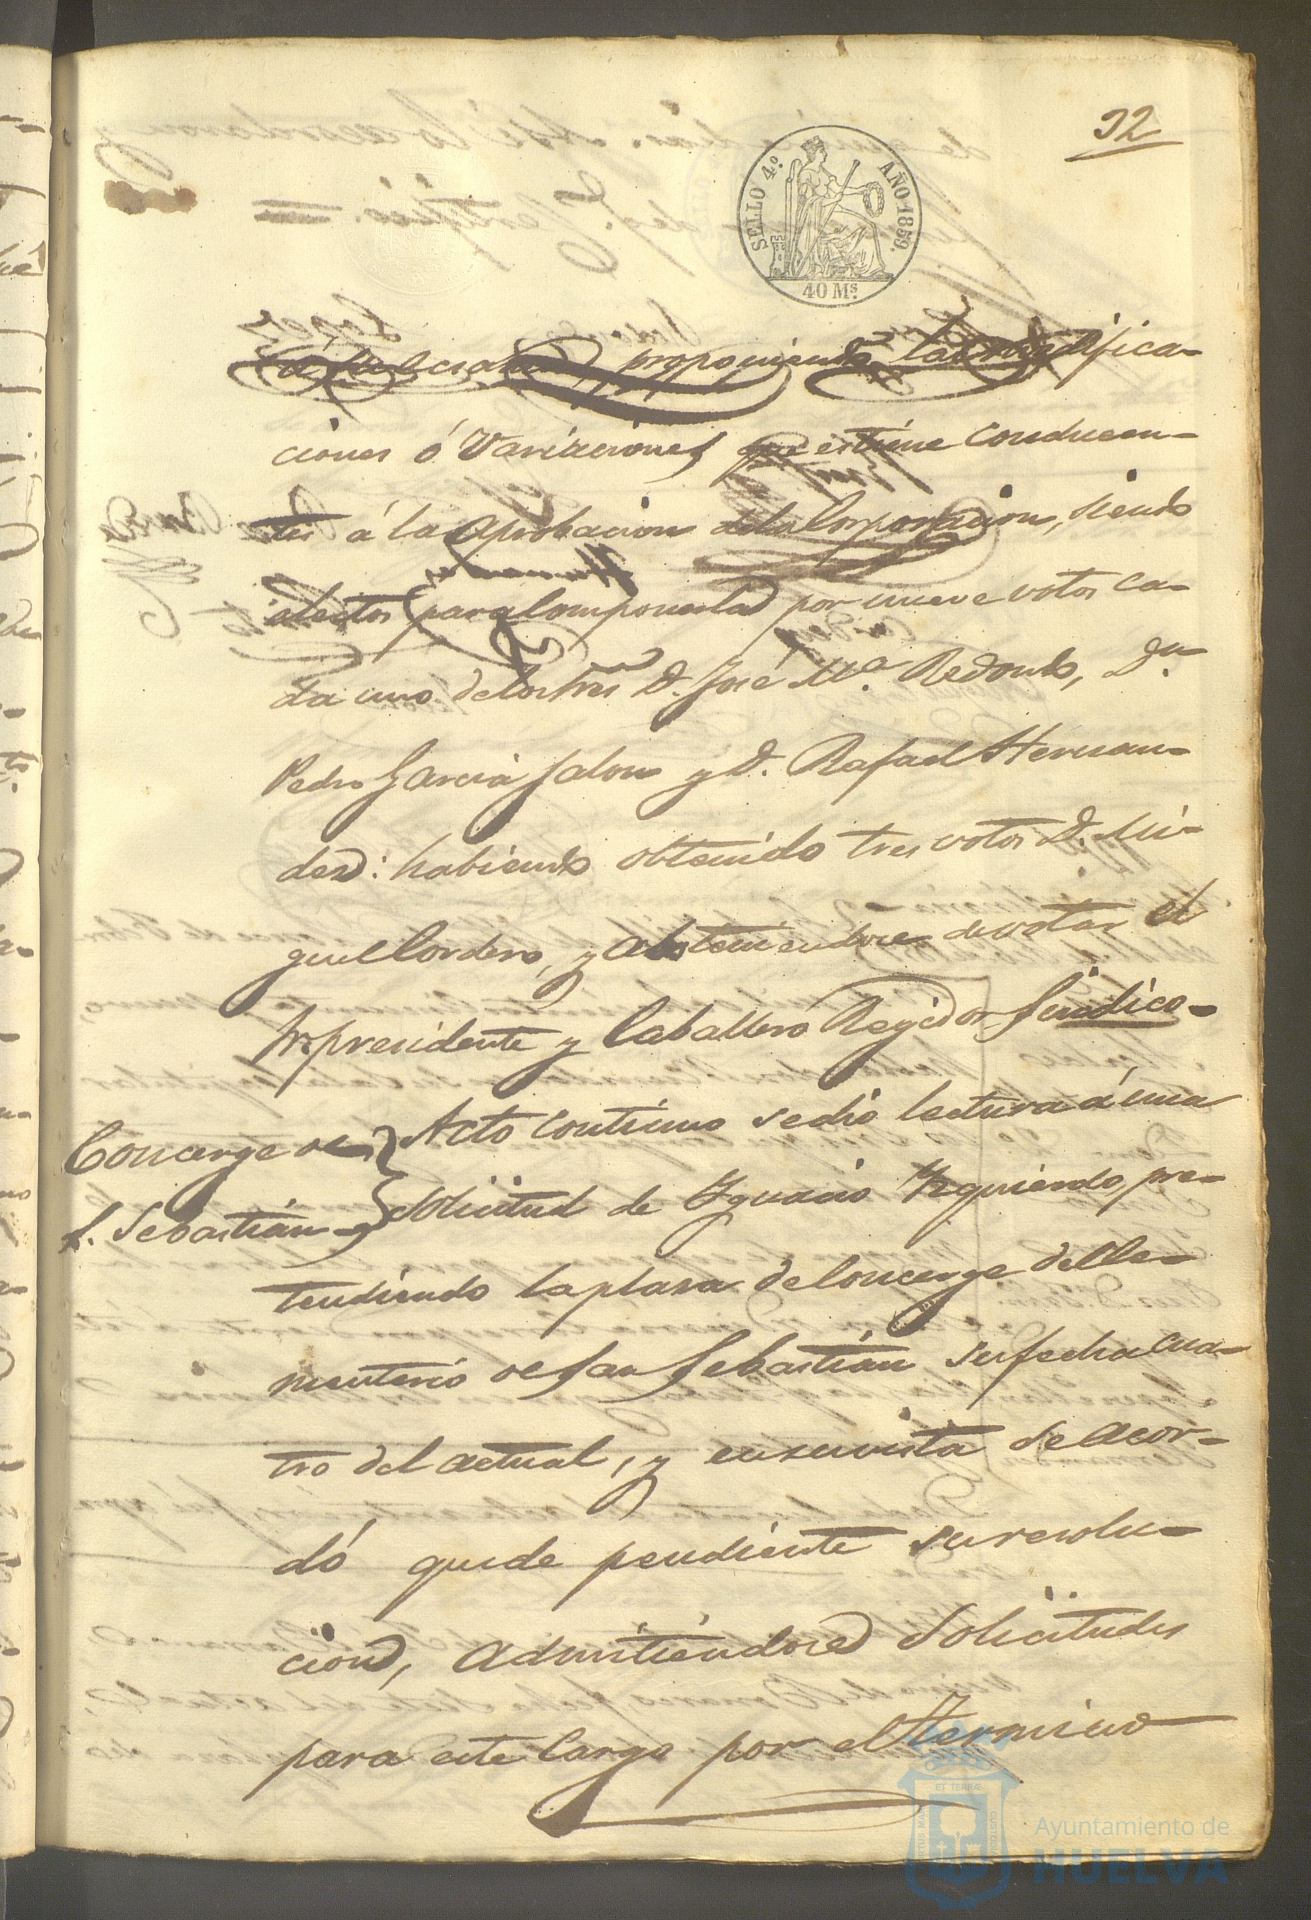 32
SELLO 4º. AÑO 1859.
40 Ms.
proponiendo las modifica-
ciones ó Variaciones que estime conducen-
tes á la aprobacion dela Corporacion, siendo
electos para Componerla por nueve votos ca-
da uno delos Sres D. José Mª. Redondo, Dn.
Pedro Garcia Jalon y D. Rafael Hernan-
dez: habiendo obtenido tres votos D. Mi-
guel Cordero, y absteniendose de votar el
Sr presidente y Caballero Regidor Sindico-
Concerge de
S. Sebastián
Acto continuo se dió lectura á una
solicitud de Ygnacio Yzquierdo, pre-
tendiendo la plaza de Concerge del Ce-
menterio de San Sebastián su fecha cua-
tro del actual, y en su vista se acor-
dó quede pendiente su resolu-
cion, admitiendose solicitudes
para este Cargo por el termino
ET TERRÆ
Ayuntamiento de
HUELVA